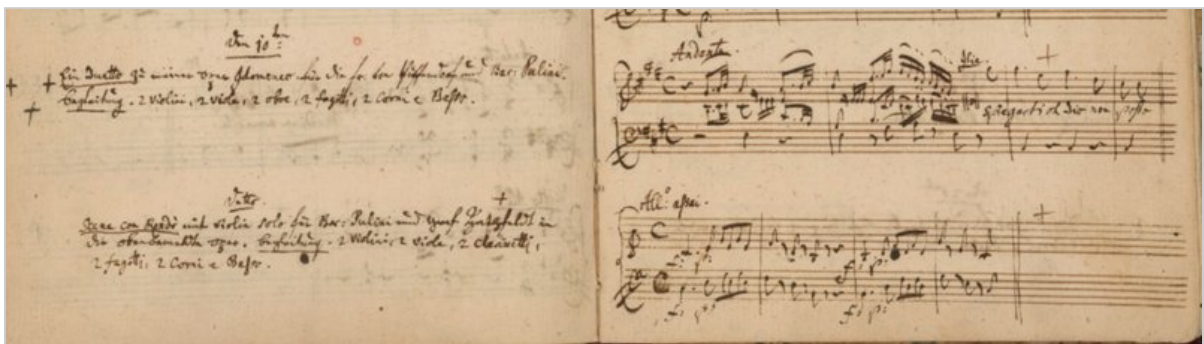 den 10ten:
Ein Duetto zu meiner oper Idomeneo. für die fr: von Puffendorf und Bar: Pulini.
begleitung. 2 violini, 2 viole, 2 oboe, 2 fagotti, 2 Corni e Basso.
Detto.
Scena con Rondò mit violin solo für Bar: Pulini und graf Hatzfeldt in
die obenbemeldte oper. begleitung. 2 violini, 2 viole, 2 clarinetti,
2 fagotti, 2 Corni e Basso.
Andante.
Ilia.
spiegarti oh Dio non posso
All:o assai.
f: p: f: p:
f: p: f: p: